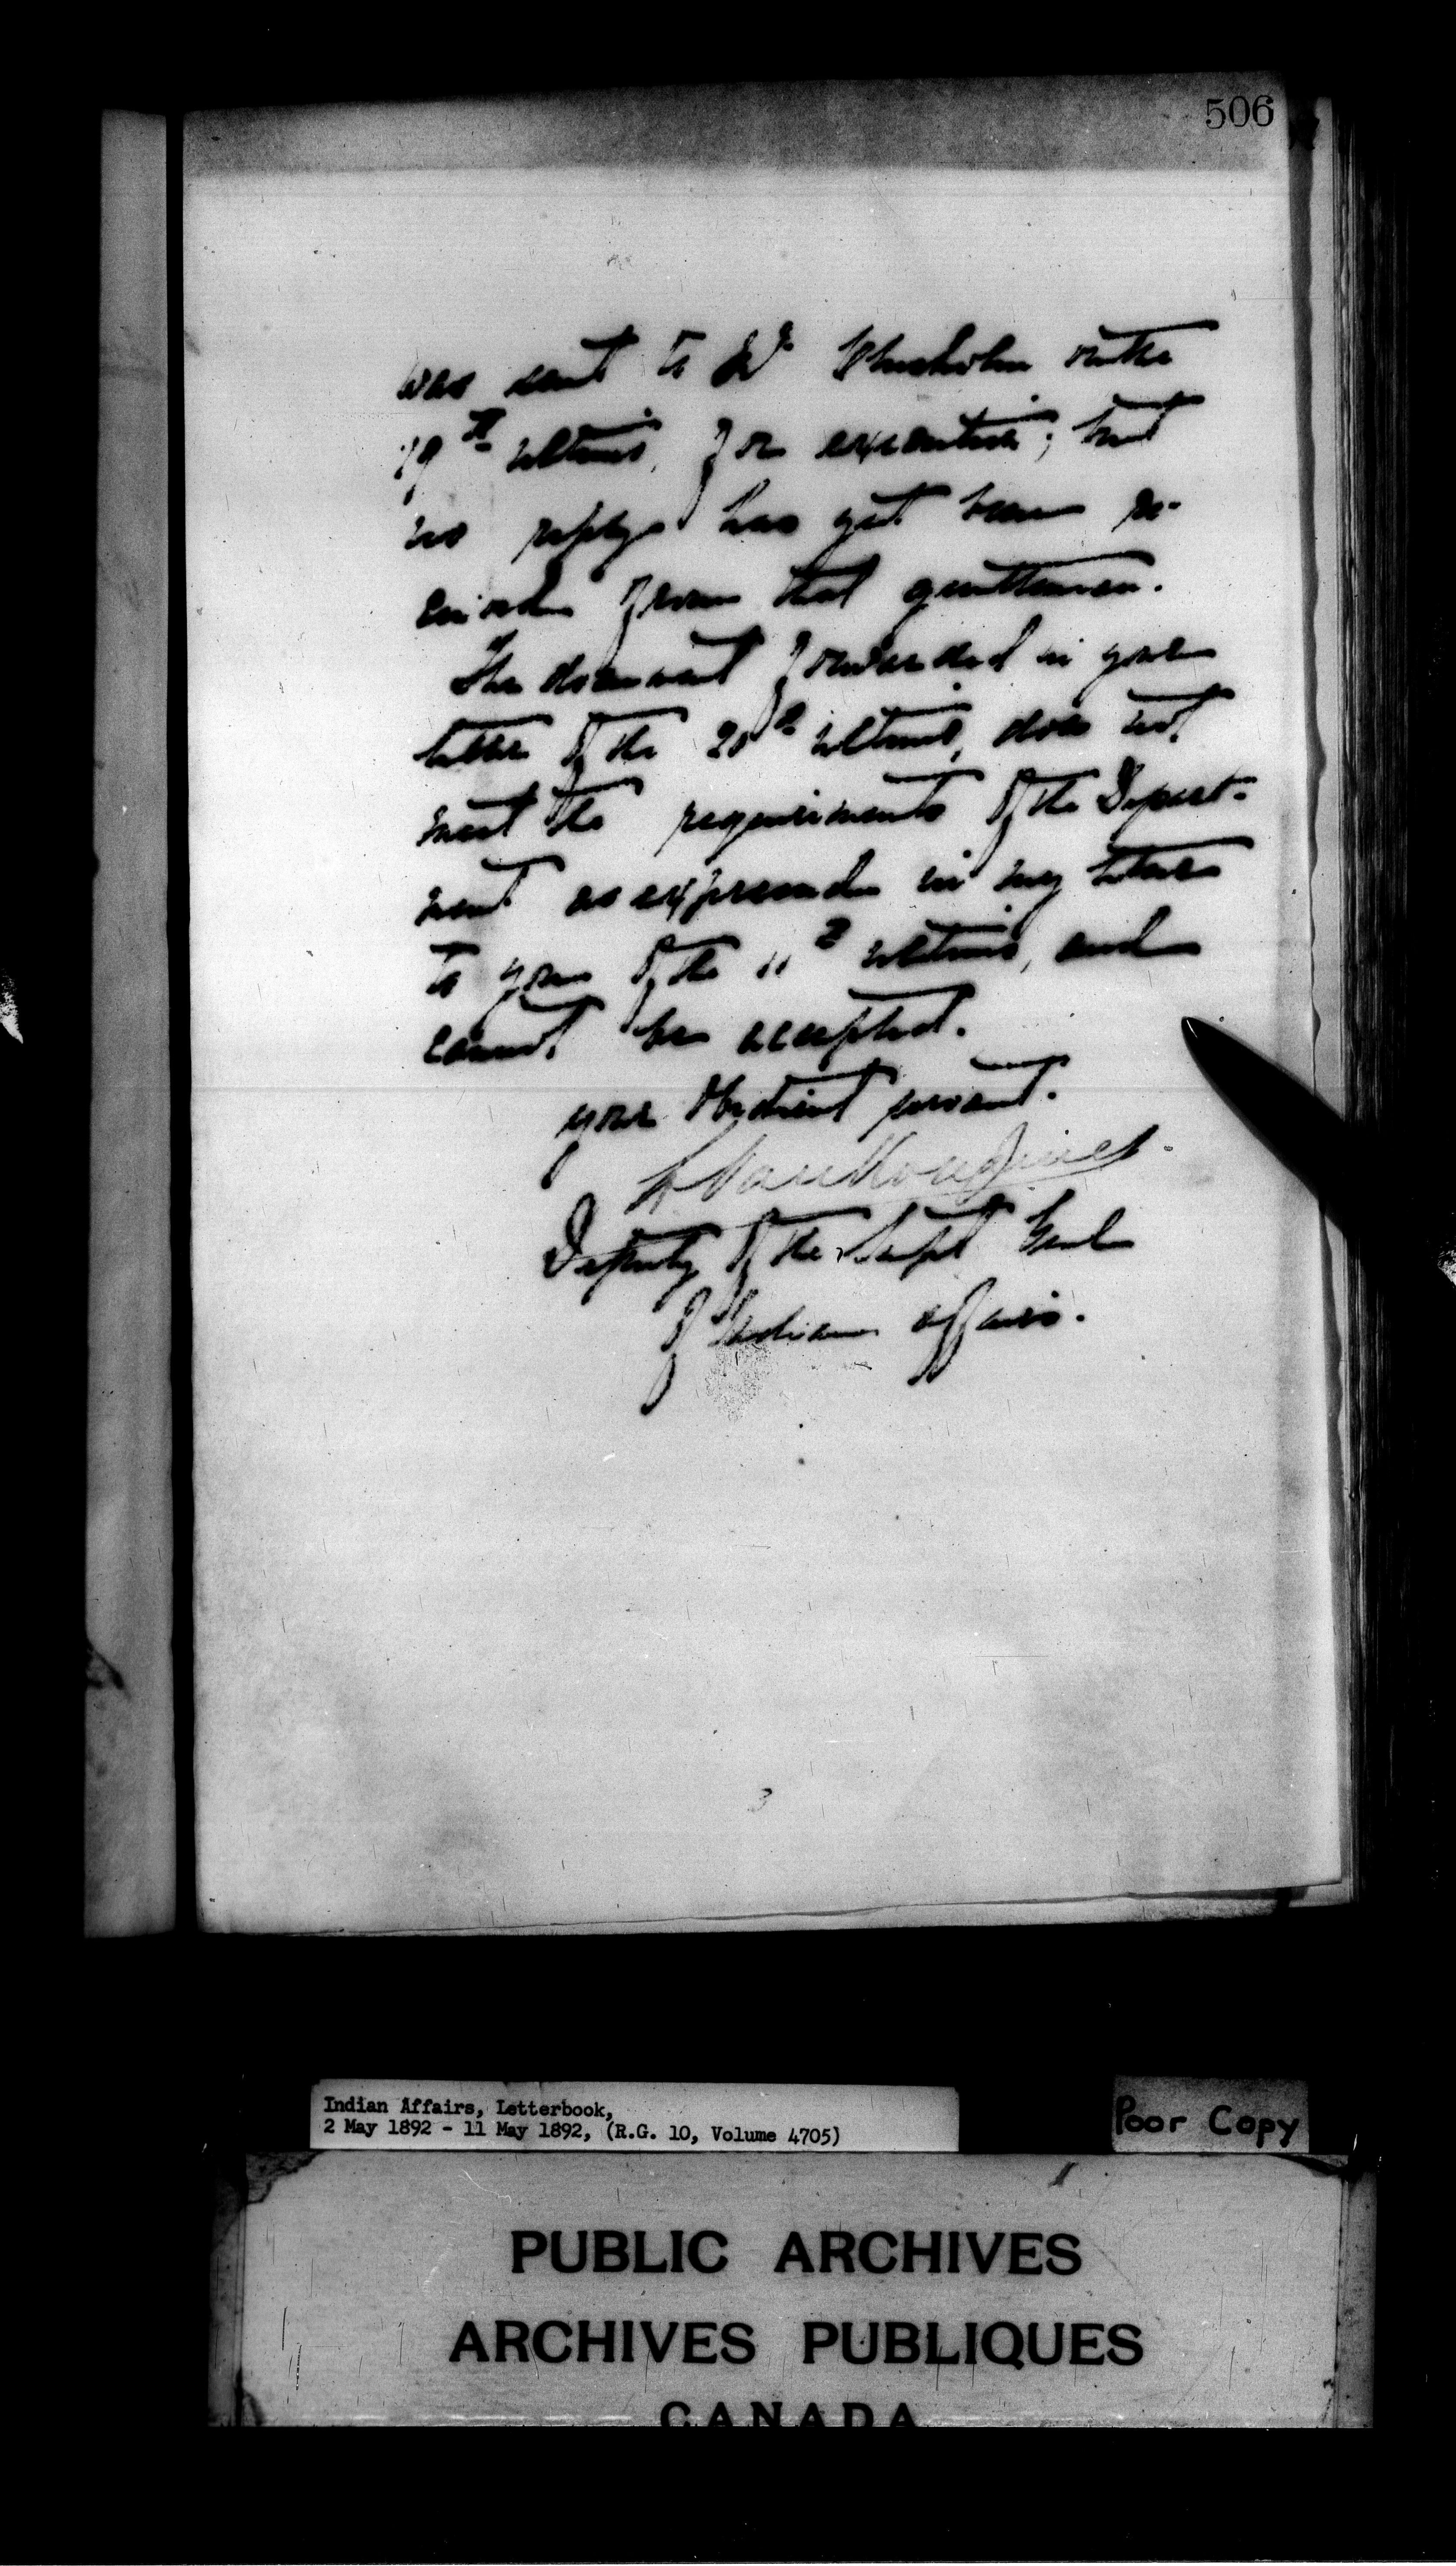 506
was sent to Dr Chisholm on the
19th ultimo, for execution; but
no reply has yet been re-
ceived from that gentleman.
The document forwarded in your
letter of the 20th ultimo, does not
meet the requirements of the Depart-
ment as expressed in my letter
to you of the 11th ultimo, and
cannot be accepted.
your obedient servant.
L Vankoughnet
Deputy of the Supt Genl
of Indian affairs.
3
Indian Affairs, Letterbook,
2 May 1892 - 11 May 1892, (R.G. 10, Volume 4705)
Poor Copy
PUBLIC ARCHIVES
ARCHIVES PUBLIQUES
CANADA